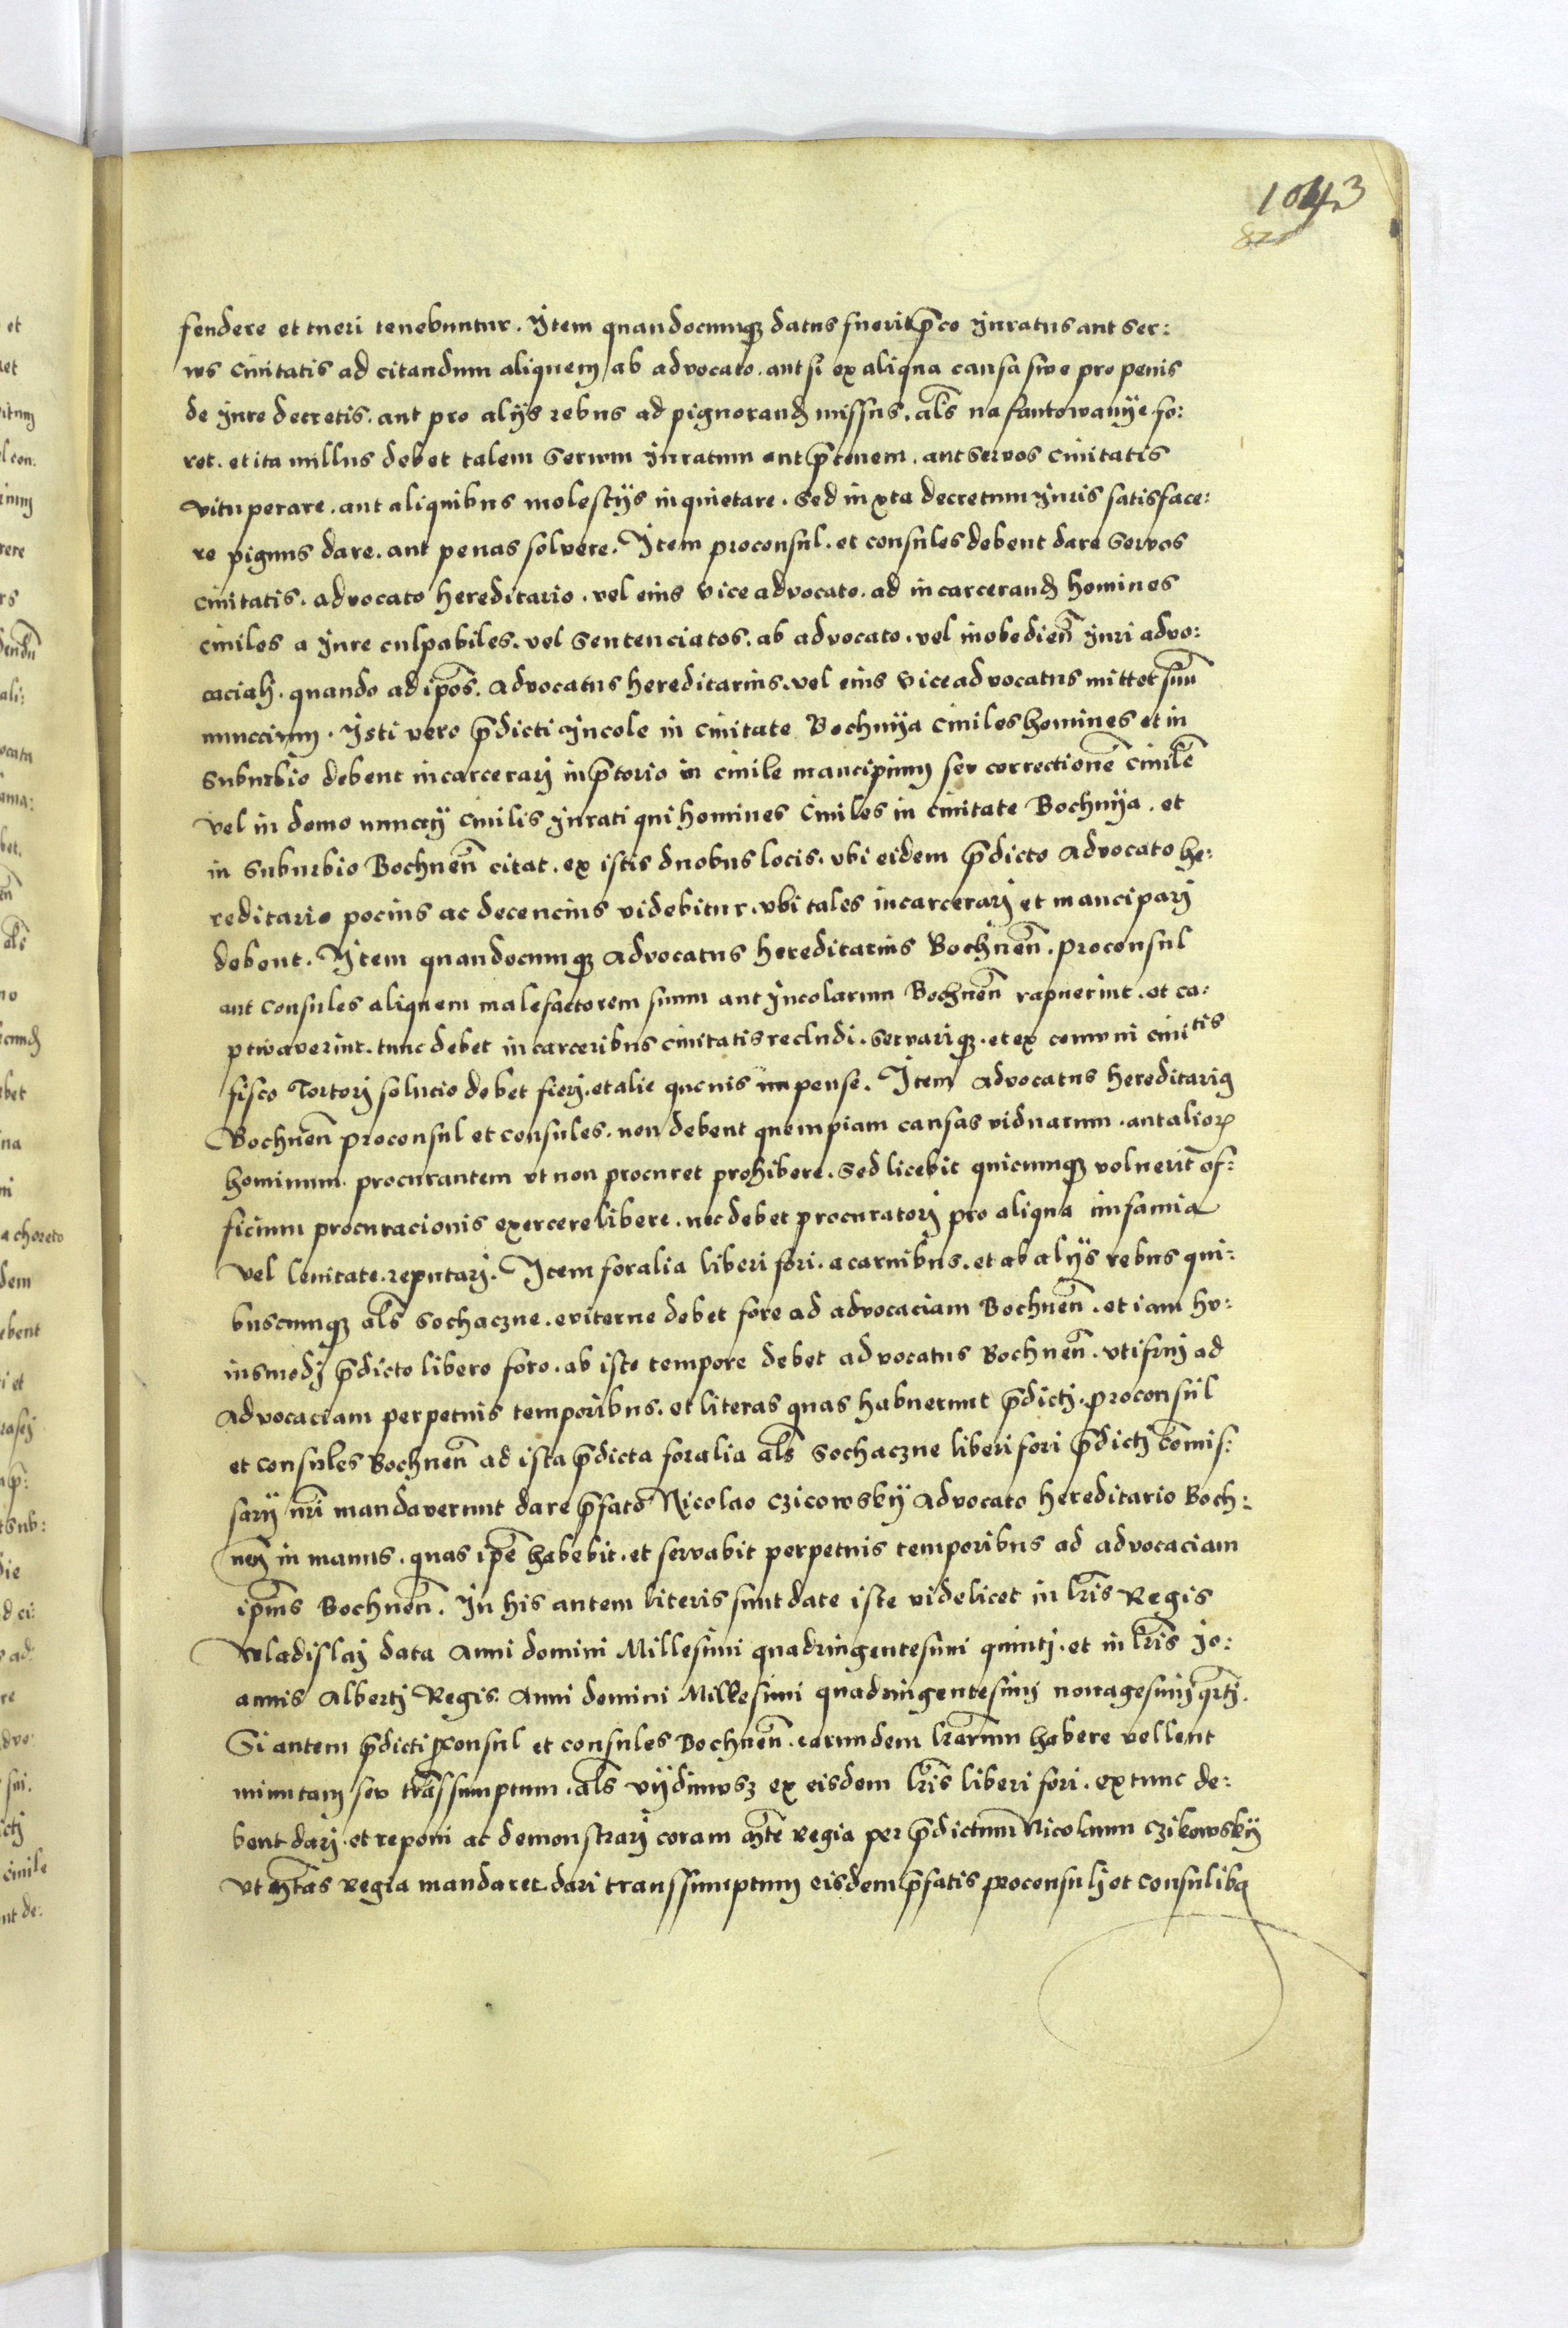 1043
825
fendere et tueri tenebuntur. Item quandocumqȝ datus fuerit p̄co Juratus aut ser:
vus Ciuitatis ad citandum aliquem, ab advocato. aut si ex aliqua causa siue pro penis
de Jure decretis. aut pro alijs rebus ad pignorandȝ missus. al̄s na fantowanÿe. fo:
ret. et ita nullus debet talem Servum Juratum aut p̄conem. aut servos Ciuitatis
vituperare. aut aliquibus molestijs inquietare. Sed iuxta decretum Juris satisface:
re pignus dare. aut penas solvere. Item proconsul. et consules debent dare Servos
Ciuitatis. advocato hereditario. vel eius vice advocato. ad incarcerandȝ homines
Ciuiles a Jure culpabiles. vel Sentenciatos. ab advocato. vel inobedien̄ Juri advo:
caciali. quando ad ip̄os. Advocatus hereditarius. vel eius Vice advocatus mittet suū
nunccium. Isti vero p̄dicti Jncole in Ciuitate Bochnÿa Ciuiles homines et in
Suburbio debent incarcerarj in p̄torio in Ciuile mancipium seu correctionē Ciuilē
vel in domo nunccij Ciuilis Jurati qui homines Ciuiles in Ciuitate Bochnÿa. et
in Suburbio Bochnen̄ citat. ex istis duobus locis. vbi eidem p̄dicto Advocato he:
reditario pocius ac decencius videbitur. vbi tales incarcerarj et manciparj
debent. Item quandocumqȝ Advocatus hereditarius Bochnen̄. proconsul
aut Consules aliquem malefactorem suum aut Jncolarum Bochnen̄ rapuerint. et ca:
ptivaverint. tunc debet in carceribus Ciuitatis recludi. Servariqȝ. et ex comuni Ciuitis
fisco Tortorj solucio debet fierj. et alie queuis impense. Item Advocatus hereditariꝯ
Bochnen̄ proconsul et consules. non debent quempiam causas viduarum. aut alioꝝ
hominum. procurantem vt non procuret prohibere. Sed licebit quicumqȝ voluerit of:
ficium procuracionis exercere libere. nec debet procuratorj pro aliqua infamia
vel leuitate. reputarj. Item foralia liberi fori. a carnibus. et ab alijs rebus qui:
buscumqȝ al̄s Sochaczne. eviterne debet fore ad advocaciam Bochnen̄. et iam hu:
iusmodj p̄dicto libero foro. ab isto tempore debet advocatus Bochnen̄. vti frui ad
Advocaciam perpetuis temporibus. et literas quas habuerunt p̄dictj. proconsul
et Consules Bochnen̄ ad ista p̄dicta foralia al̄s Sochaczne liberi fori p̄dictj Com̄is:
sarij nr̄i mandaverunt dare p̄fato Nicolao Czicowskÿ Advocato hereditario Boch:
nen̄ in manus. quas ip̄e habebit. et servabit perpetuis temporibus ad advocaciam
ip̄ius Bochnen̄. In his autem literis sunt date iste videlicet in lr̄is Regis
Wladislaj data Anni domini Millesimi quadringentesimi quintj. et in lr̄is Jo:
annis Albertj Regis. Anni domini Millesimi quadringentesimj nonagesimj qrtj.
Si autem p̄dicti ꝓconsul et consules Bochnen̄. earundem lr̄arum habere vellent
minutam seu trāssumptum. al̄s vÿdimvsz ex eisdem lr̄is liberi fori. extunc de:
bent darj. et reponi ac demonstrarj coram M̄te regia per p̄dictum Nicolaum Czikowskÿ
vt M̄tas regia mandaret dari transsumptum eisdem p̄fatis proconsulj et Consulibꝯ